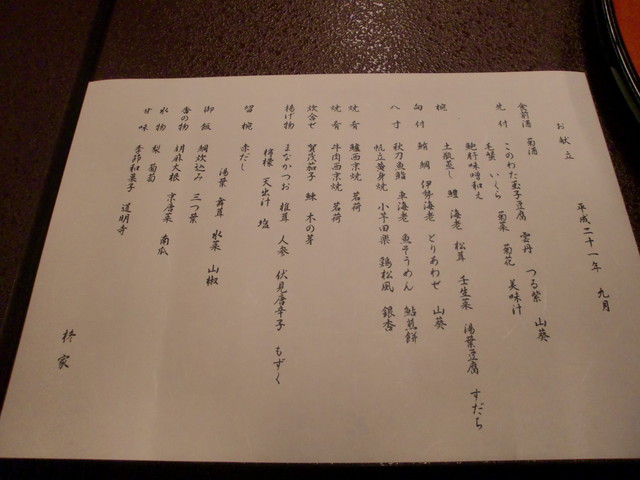 平成二十一年 九月
お献立
食前酒 菊酒
先付 このわた玉子豆腐 雲丹 つる紫 山葵
毛蟹 いくら 菊菜 菊花 美味汁
鮑肝味噌和え
椀 土瓶蒸し 鱧 海老 松茸 壬生菜 湯葉豆腐 すだち
向付 鮪 鯛 伊勢海老 とりあわせ 山葵
八寸 秋刀魚鮨 車海老 魚そうめん 鮎煎餅
帆立黄身焼 小芋田楽 鶏松風 銀杏
焼肴 鱸西京焼 茗荷
焼肴 牛肉西京焼 茗荷
炊合せ 賀茂茄子 鰊 木の芽
揚げ物 まながつお 椎茸 人参 伏見唐辛子 もずく
檸檬 天出汁 塩
留椀 赤だし
湯葉 舞茸 水菜 山椒
御飯 鯛炊込み 三つ葉
香の物 胡麻大根 京唐菜 南瓜
水物 梨 葡萄
甘味 季節和菓子 道明寺
柊家